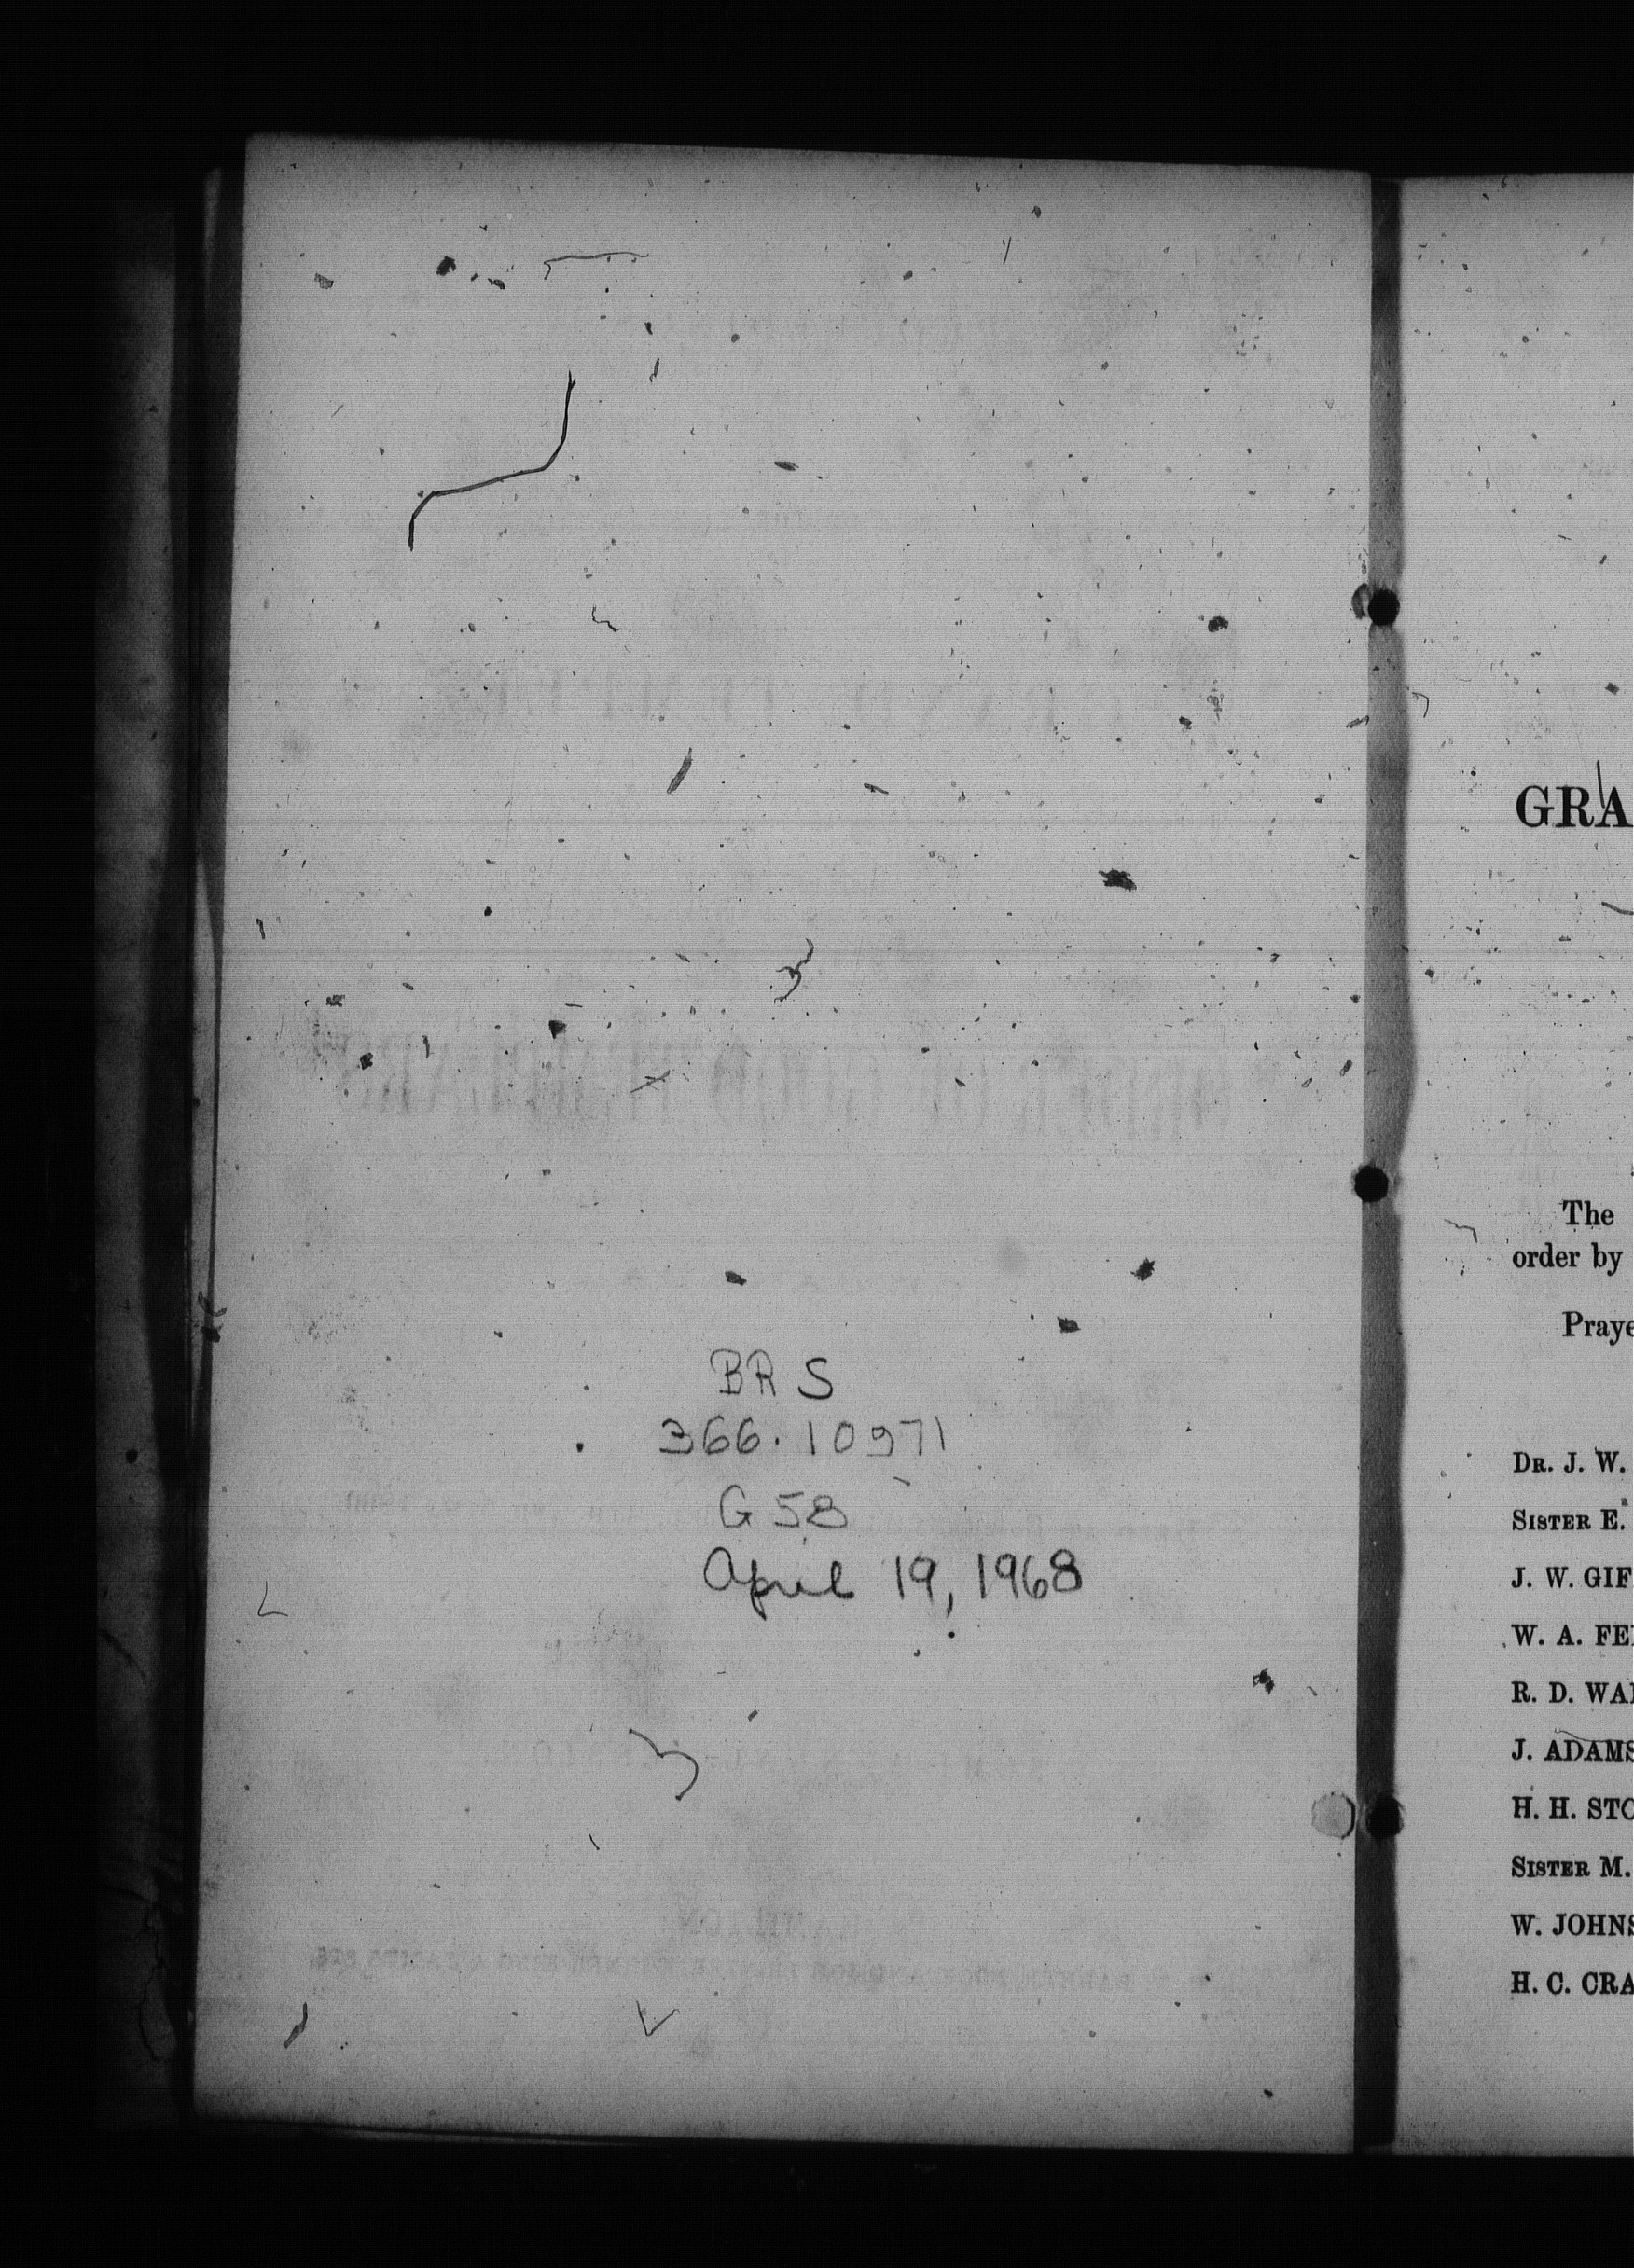 BR S
366.10971
G58
April 19, 1968
GRA
The
order by
Praye
DR. J. W.
SISTER E.
J. W. GIF
W. A. FE
R. D. WA
J. ADAMS
H. H. STO
SISTER M.
W. JOHNS
H. C. CRA